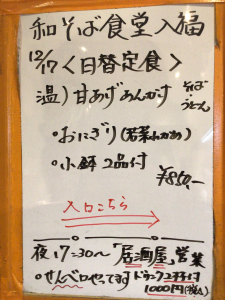 和そば食堂入福
12/17〈日替定食〉
温)甘あげあんかけ そば・うどん
・おにぎり(若菜わかめ)
・小鉢2品付
¥850,-
入口こちら
夜17-30〜「居酒屋」営業
・せんべろやってます ドリンク2杯付 1000円(税込)